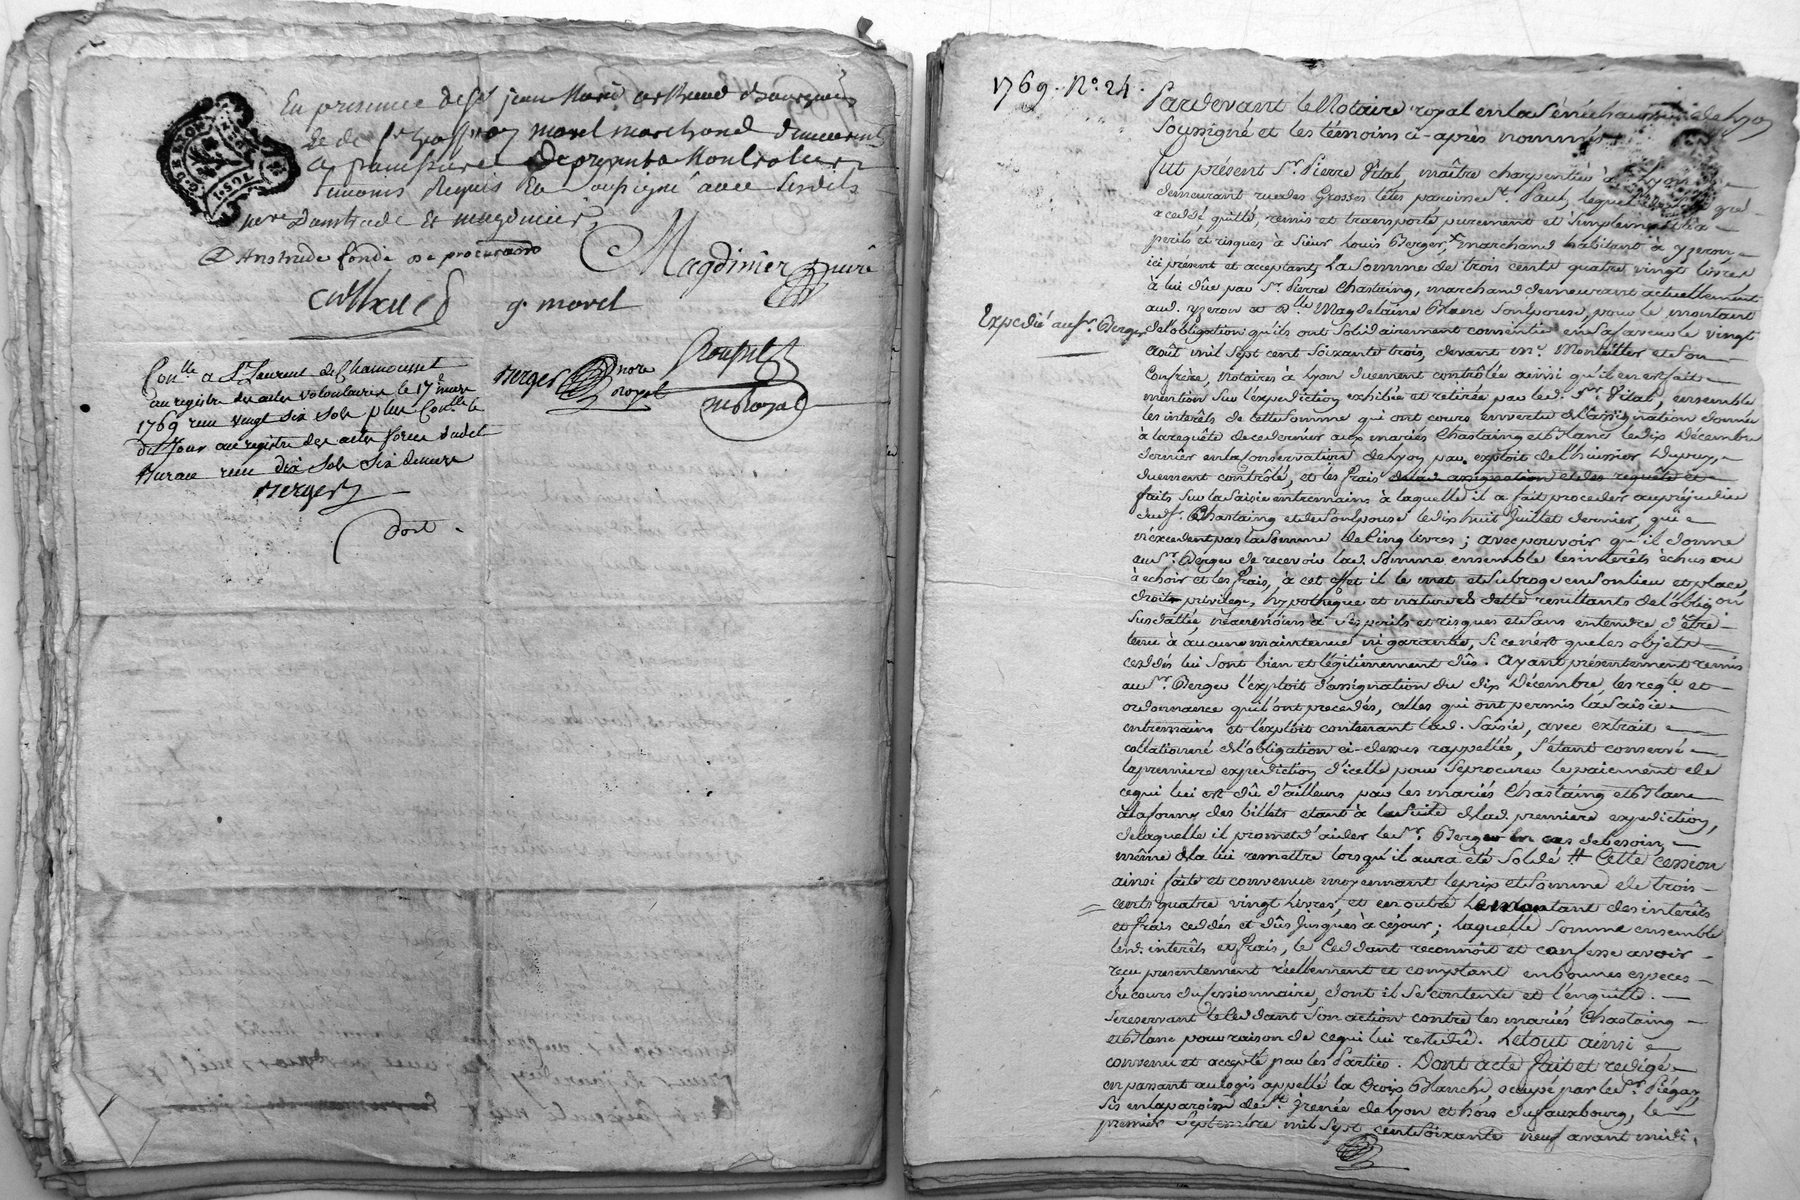 En presence de Sr jean
morel marchand
temoins Requis Et soussigné avec lesdits
Et magdinier
fondé de procuration
Magdinier curé
g. morel
Conlle a St Laurent de Chamousset
au registre des actes volontaires le 17e mars
1769 reçu vingt six sols plus Conlle le
dit Jour au registre des actes
Bureau reçu dix sols six deniers
Berger
Berger
nore
royal
Roupil
ne Royal
Dord
1769. No. 24.
Pardevant le Notaire royal en la Sénéchaussée de Lyon
Soussigné et les témoins ci-après nommés
fut présent Sr. Pierre Vital, maître charpentier à Lyon
demeurant rue des Grosses têtes paroisse St. Paul, lequel de gré
a cedé, quitté, remis et transporté purement et simplement à ses
perils et risques à Sieur Louis Berger, marchand habitant à yzeron
ici présent et acceptant, La Somme de trois cents quatre vingt livres
à lui dûe par Sr. Pierre Chastaing, marchand demeurant actuellement
aud. yzeron et Dlle Magdelaine Blanc Son Epouse, pour le montant
Expedié au Sr. Berger
de l'obligation qu'ils ont Solidairement consentie en Sa faveur le vingt
août mil sept cent soixante trois, devant Me. Montellier et Son
Confrère, Notaires à Lyon duement contrôlée ainsi qu'il en est fait
mention Sur l'expedition exhibée et retirée par led. Sr. Vital, ensemble
les interêts de cette Somme qui ont cours en vertu de l'assignation donnée
à la requête de ce dernier aux mariés Chastaing et Blanc le dix Décembre
dernier en la Conservation de Lyon par exploit de l'huissier Dupuy,
duement contrôlé, et les frais de lad. assignation et des requête et
faits Sur la Saisie entremains à laquelle il a fait proceder au préjudice
dud. Sr. Chastaing et de Son Epouse le dix huit Juillet dernier, qui
n'excedent pas la Somme de Cinq livres; avec pouvoir qu'il donne
au Sr. Berger de recevoir lad. Somme ensemble les interêts échus ou
à échoir et les frais, à cet effet il le met et Subroge en Son lieu et place,
droits privilege, hypotheque et nature de dette resultants de l'obligon
Susdattée, néanmoins à Ses perils et risques et Sans entendre d'être
tenu à aucune maintenue ni garantie, Si ce n'est que les objets
cedés lui Sont bien et légitimement dûs. Ayant présentement remis
au Sr. Berger l'exploit d'assignation du dix Décembre, les reqte. et
ordonnance qui l'ont precedés, celles qui ont permis la Saisie
entremains et l'exploit contenant lad. Saisie, avec extrait
collationné de l'obligation ci-dessus rappellée, S'étant conservé
la premiere expedition d'icelle pour Se procurer le paiement de
ce qui lui est dû d'ailleurs par les mariés Chastaing et Blanc
à la forme des billets étant à la Suite de lad. premiere expedition,
de laquelle il promet d'aider le Sr. Berger en cas de besoin,
même de la lui remettre lorsqu'il aura été Soldé # Cette cession
ainsi faite et convenue moyennant le prix et Somme de trois
cents quatre vingt livres, et en outre le montant des interêts
et frais cedés et dûs Jusques à ce jour; laquelle Somme ensemble
lesd. interêts et frais, le Cedant reconnoit et confesse avoir
reçu présentement réellement et comptant en bonnes especes
du cours du Cessionnaire, dont il Se contente et l'en quitte.
Se reservant le Cedant Son action contre les mariés Chastaing
et Blanc pour raison de ce qui lui reste dû. Le tout ainsi
convenu et accepté par les Parties. Dont acte fait et redigé
en passant au logis appellé la Croix Blanche, occupé par le Sr. Piégay
Sis en la paroisse de St. Irenée de Lyon et hors du fauxbourg, le
premier Septembre mil sept cent soixante neuf avant midi.